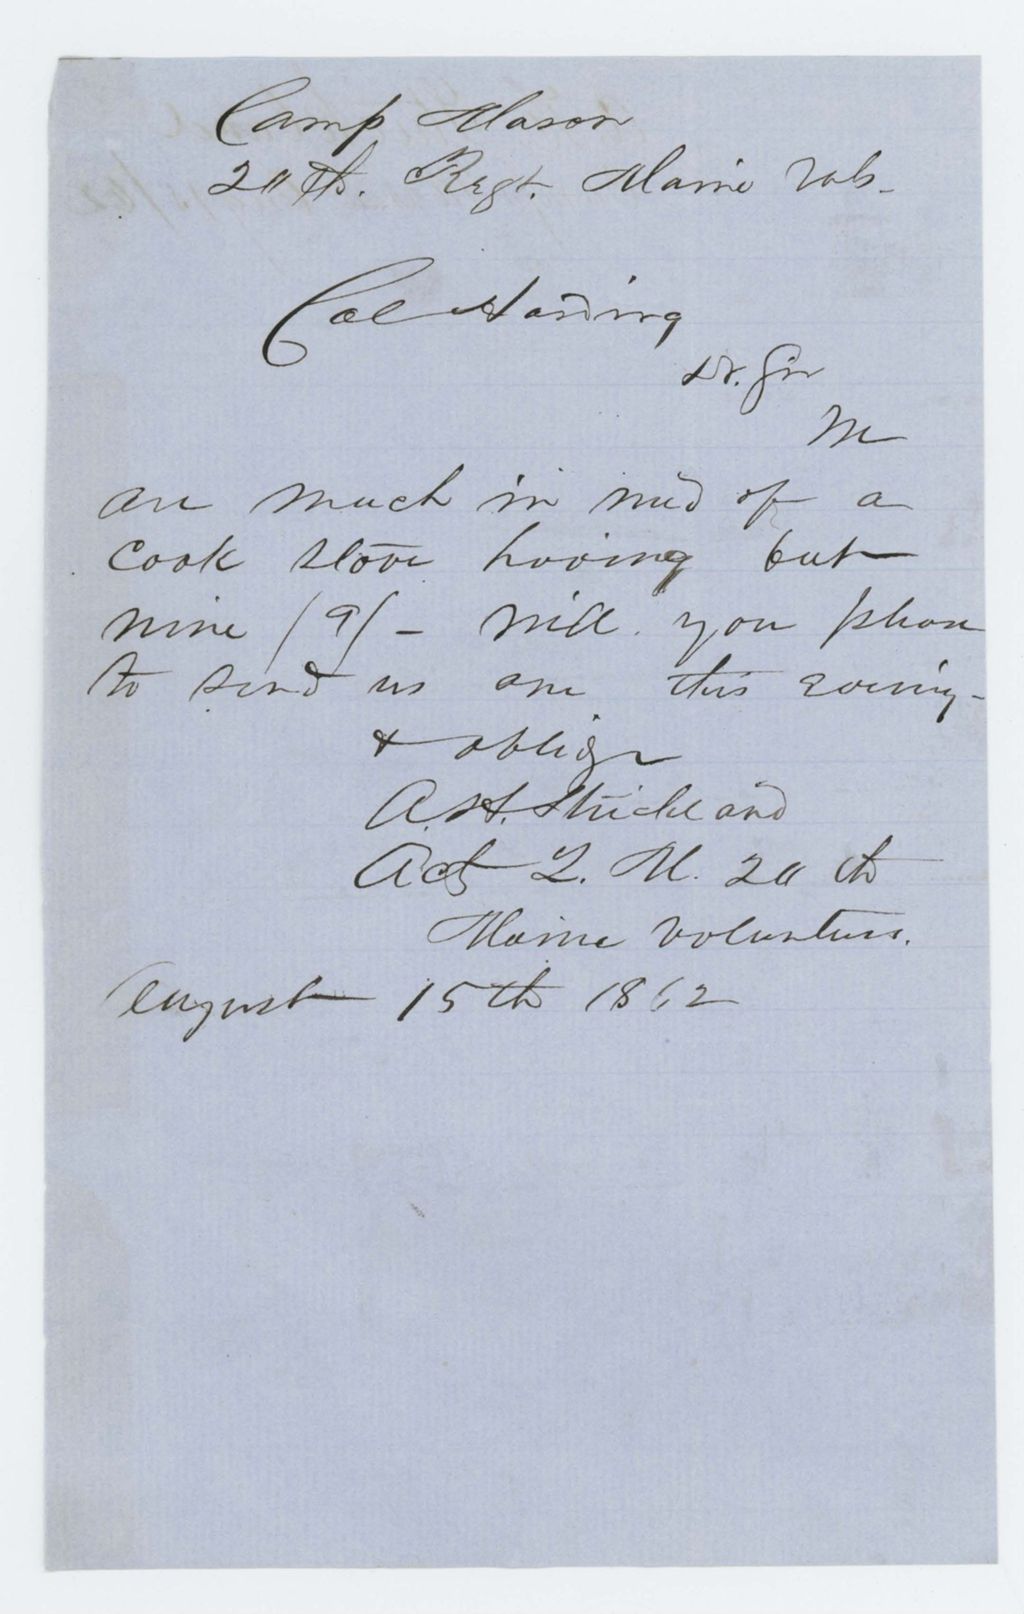 Camp Mason
20th. Regt. Maine Vols-
Col Harding
Dr. Sir
We
are much in need of a
cook stove having but
nine /9/ - Will you please
to send us one this evening-
& oblige
A.H. Strickland
Act Q. M. 20 th
Maine Volunteers.
August 15th 1862